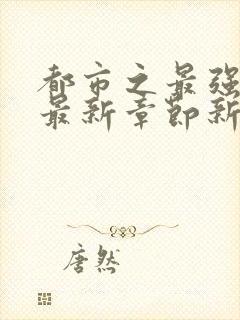 都市之最强
最新章节新
唐然